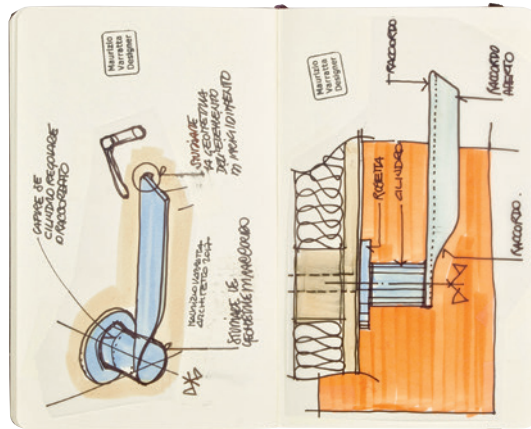 Maurizio
Varratta
Designer
CAPIRE SE
CILINDRO REGOLARE
O RACCORDATO
STUDIARE
LA GEOMETRIA
DELL'ELEMENTO
DI
MAURIZIO VARRATTA
ARCHITETTO 2017
STUDIARE LE
GEOMETRIE DI RACCORDO
Maurizio
Varratta
Designer
RACCORDO
RACCORDO
APERTO
ROSETTA
CILINDRO
RACCORDO